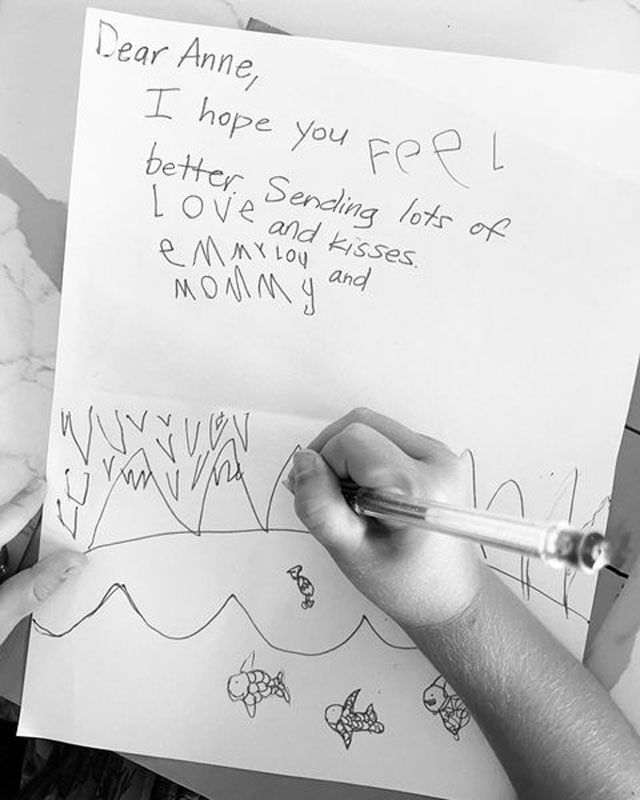 Dear Anne,
I hope you FeeL
better. Sending lots of
LOVe and kisses.
eMMYLOU and
MOMMy